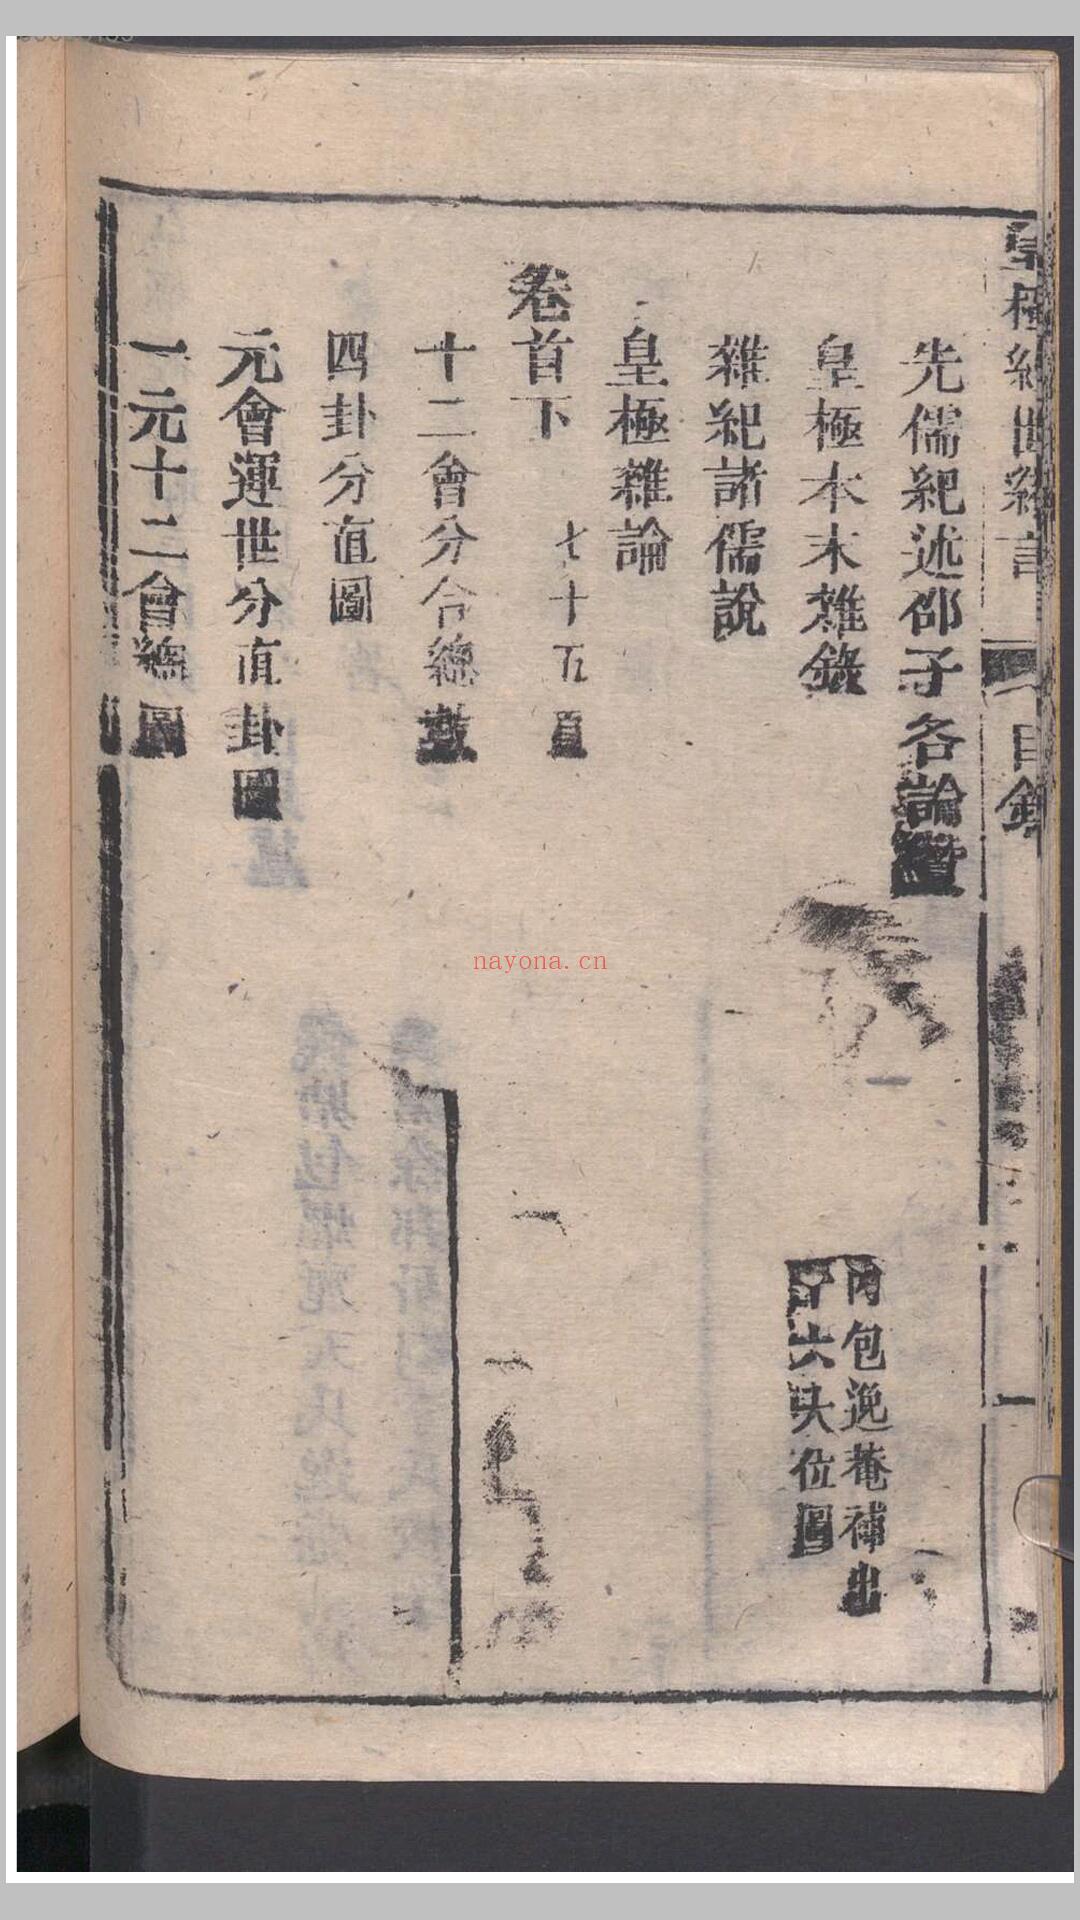 皇極經世緒言 目錄
先儒紀述邵子各論
皇極本末雜錄
内包逸菴補出
六夬位圖
雜紀諸儒說
皇極雜論
卷首下 七十五頁
十二會分合總數
四卦分直圖
元會運世分直卦圖
一元十二會總圖
nayona.cn